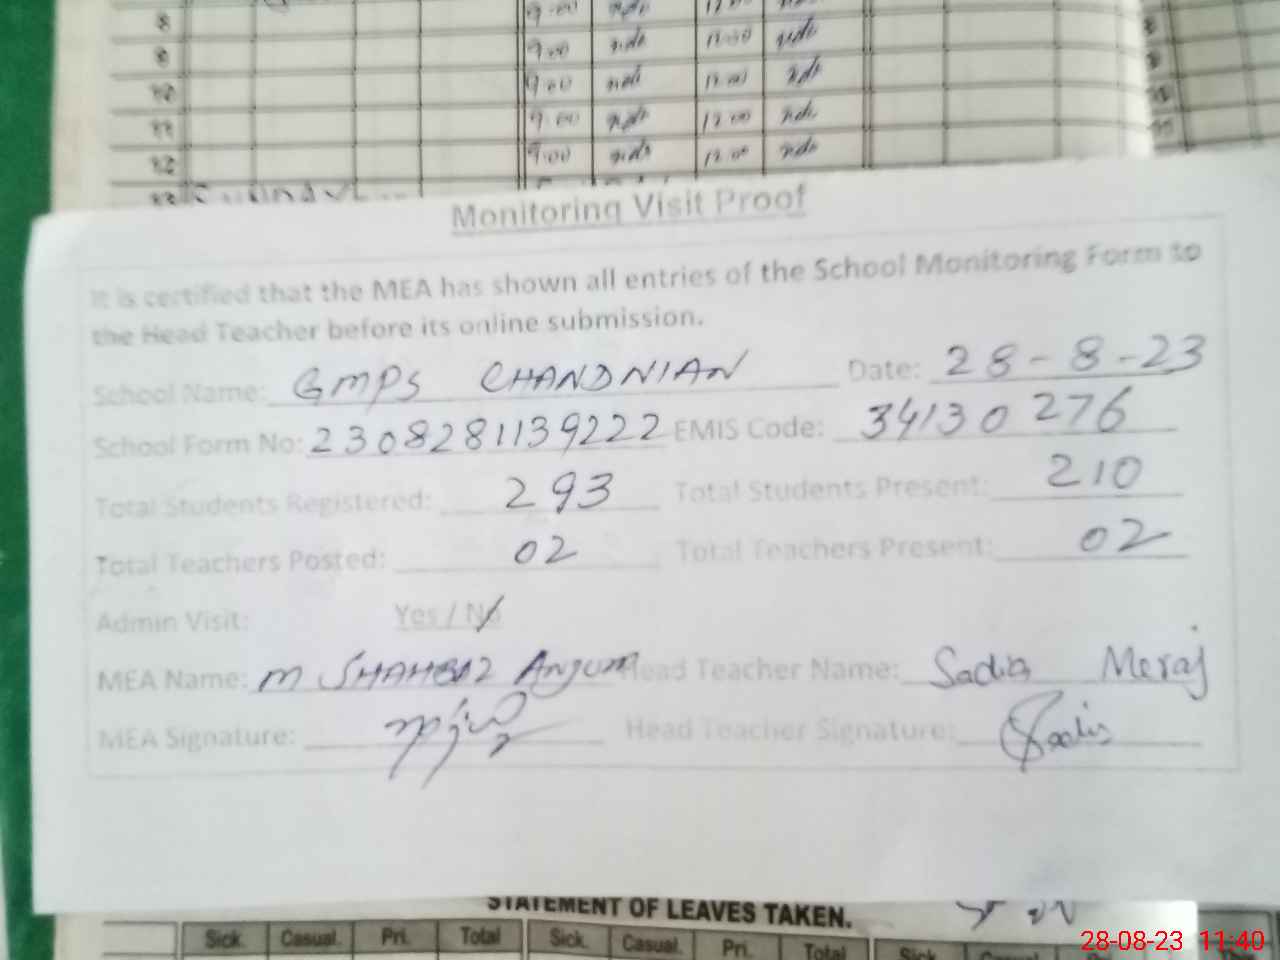 8 9.00 nds 12.00 nds
9 9.00 nds 12.00 nds
10 9.00 nds 12.00 nds
11 9.00 nds 12.00 nds
12 9.00 nds 12.00 nds
13
Monitoring Visit Proof
It is certified that the MEA has shown all entries of the School Monitoring Form to
the Head Teacher before its online submission.
School Name: GMPS CHANDNIAN Date: 28-8-23
School Form No: 2308281139222 EMIS Code: 34130276
Total Students Registered: 293 Total Students Present: 210
Total Teachers Posted: 02 Total Teachers Present: 02
Admin Visit: Yes / No
MEA Name: M SHAHBAZ Anjum Head Teacher Name: Sadia Meraj
MEA Signature: Head Teacher Signature: Sadia
STATEMENT OF LEAVES TAKEN.
Sick. Casual. Pri. Total Sick. Casual. Pri. Total Sick
28-08-23 11:40